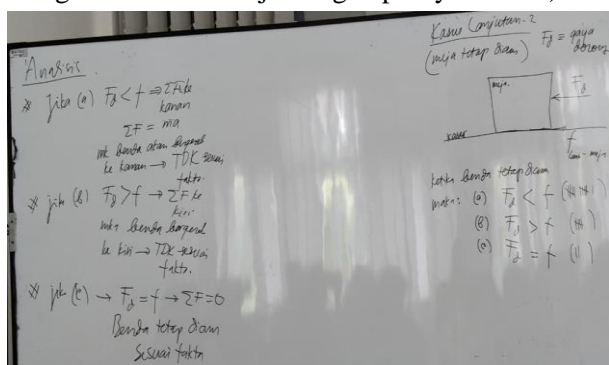 Analisis
※ Jika (a) Fd < f ⇒ ΣF ke
kanan
ΣF = ma
mk benda akan bergerak
ke kanan → TDK sesuai
fakta.
※ jika (b) Fd > f → ΣF ke
kiri.
mka benda bergerak
ke kiri → TDK sesuai
fakta.
※ jika (c) → Fd = f → ΣF = 0
Benda tetap diam
Sesuai fakta
Kasus Lanjutan-2
(meja tetap diam)
Fd = gaya
dorong
meja.
Fd
kasar
f
Ketika benda tetap diam
maka: (a) Fd < f
(b) Fd > f
(c) Fd = f (II)